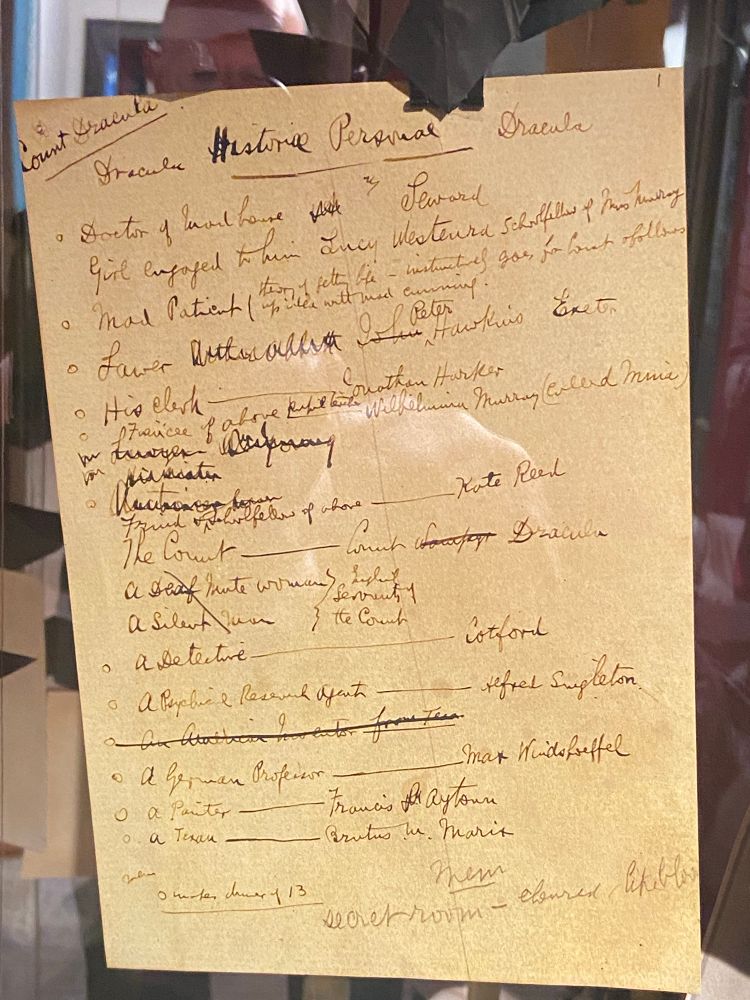 1
Count Dracula
Dracula Historiae Personae Dracula
Doctor of Mad house Seward
Girl engaged to him Lucy Westenra Schoolfellow of Miss Murray
Mad Patient (theory of getting life – instinctively goes for Count & follows
up idea with mad cunning.
Lawyer John Peter Hawkins Exeter
His clerk Jonathan Harker
Fiancée of above pupil teacher Wilhelmina Murray (called Mina)
Friend & Schoolfellow of above Kate Reed
The Count Count Wampyr Dracula
A Deaf Mute woman } English
A Silent Man } Servants of
the Count
A Detective Cotford
A Psychical Research Agent Alfred Singleton.
An American Inventor from Texas
A German Professor Max Windshoeffel
A Painter Francis Aytown
A Texan Brutus M. Marix
mem
dinner of 13
Mem
secret room – coloured like blood